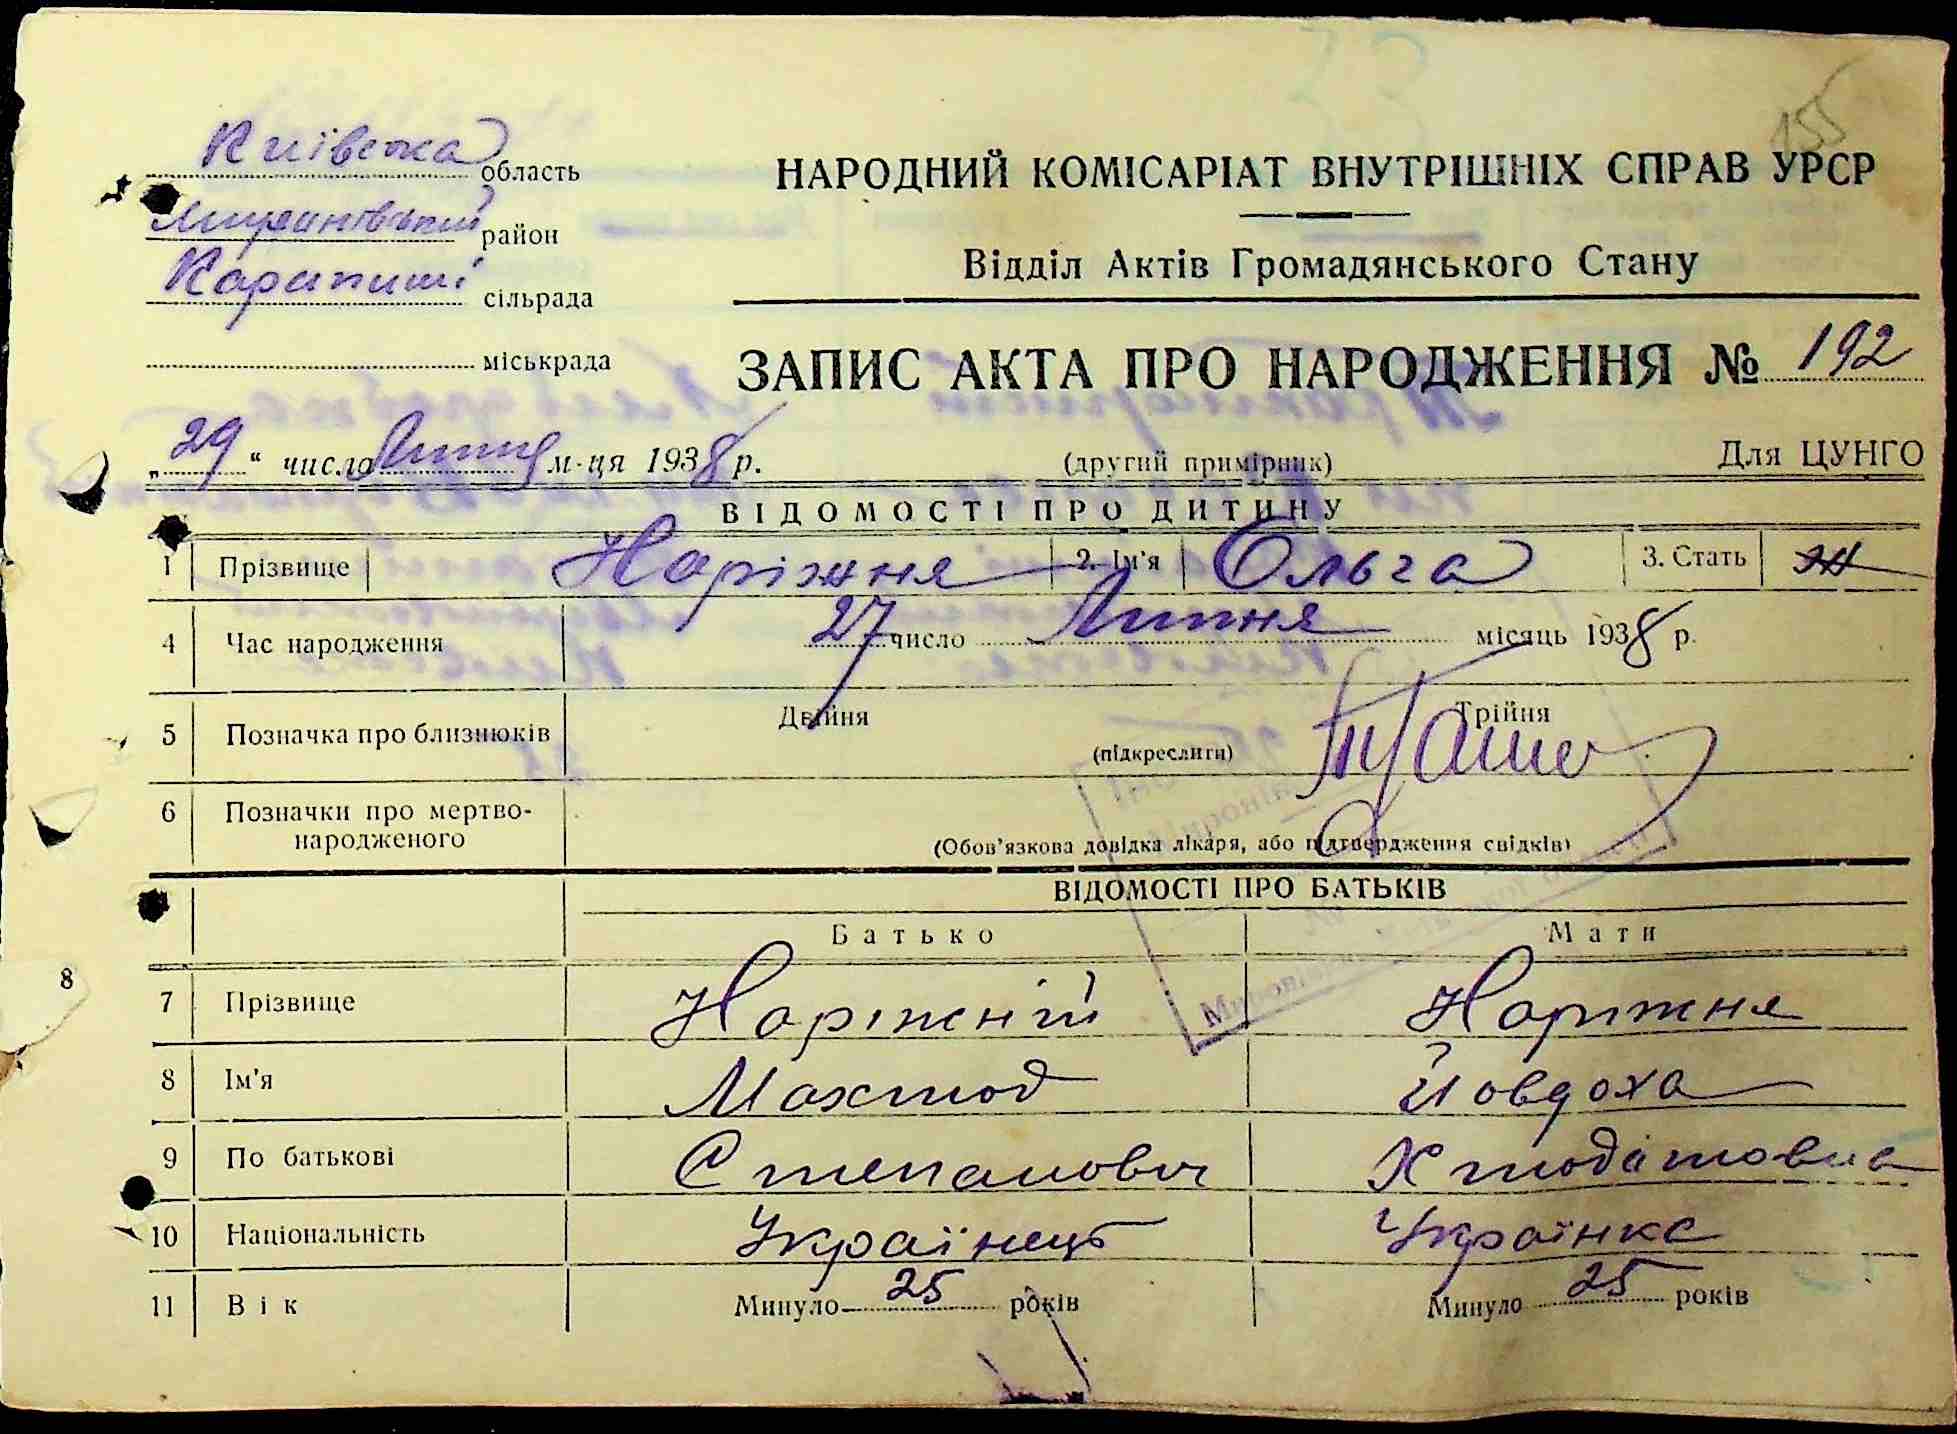 155
Київська область
НАРОДНИЙ КОМІСАРІАТ ВНУТРІШНІХ СПРАВ УРСР
Миронівський район
Відділ Актів Громадянського Стану
Карапиші сільрада
міськрада
ЗАПИС АКТА ПРО НАРОДЖЕННЯ № 192
„29“ число Липня м-ця 1938 р.
(другий примірник)
Для ЦУНГО
ВІДОМОСТІ ПРО ДИТИНУ
1 Прізвище Наріжня 2. Ім'я Ольга 3. Стать Ж
4 Час народження 27 число Липня місяць 1938 р.
5 Позначка про близнюків Двійня (підкреслити) Трійня
6 Позначки про мертво-
народженого
(Обов'язкова довідка лікаря, або підтвердження свідків)
ВІДОМОСТІ ПРО БАТЬКІВ
Батько Мати
8
7 Прізвище Наріжній Наріжня
8 Ім'я Йовдоха
9 По батькові Степанович
10 Національність Українець Українка
11 Вік Минуло 25 років Минуло 25 років